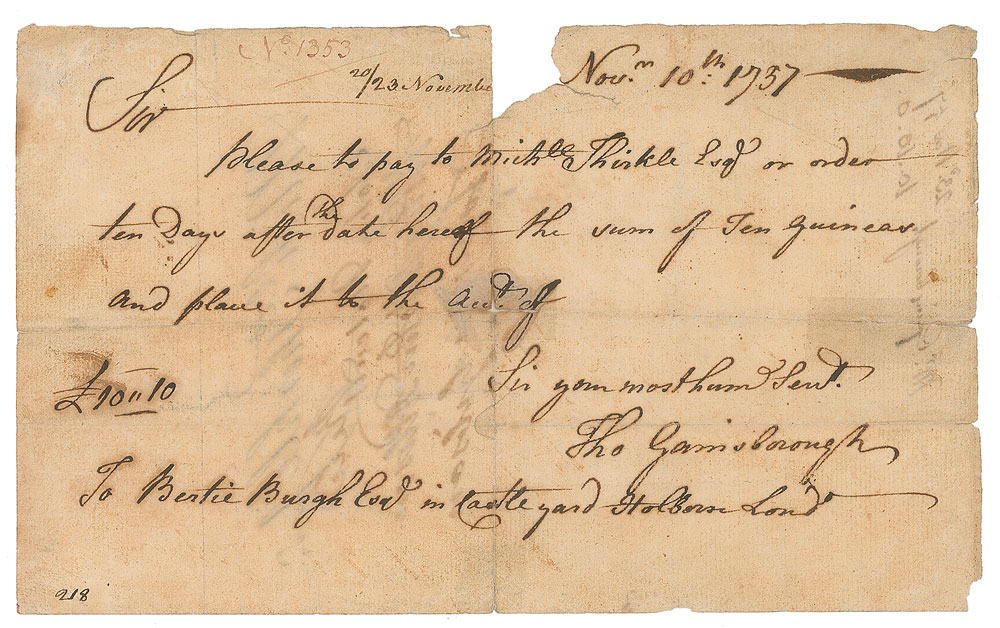 No. 1353
20/23 November
Nov.r 10th: 1757
Sir
Please to pay to Mich.ll Thirkle Esqr or order
ten Days after the date hereof the sum of Ten Guineas
and place it to the Acct. of
£10 " 10
Sir your most hum.e Servt.
Tho Gainsborough
To Bertie Burgh Esqr in Castle yard Holborn Lond.
218